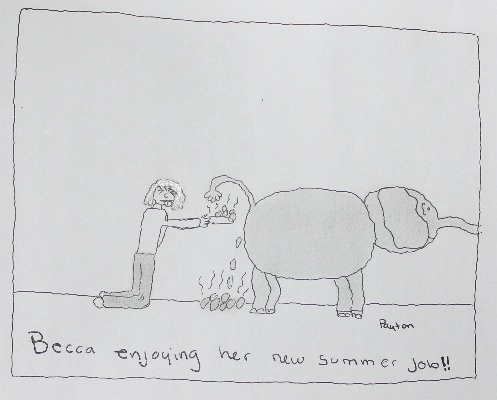 Payton
Becca enjoying her new summer job!!